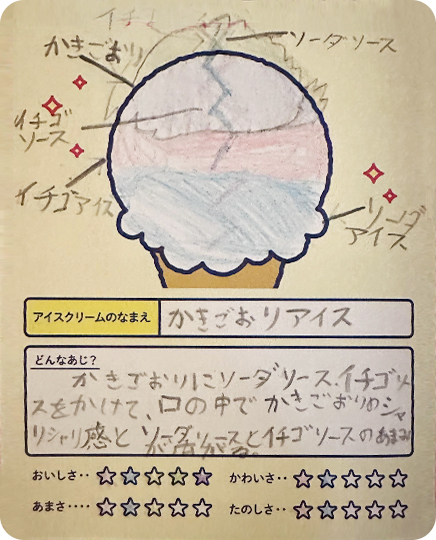 イチゴ
かきごおり
ソーダソース
イチゴ
ソース
イチゴアイス
ソーダ
アイス
アイスクリームのなまえ
かきごおりアイス
どんなあじ?
かきごおりにソーダソース、イチゴソー
スをかけて、口の中でかきごおりのシャ
リシャリ感とソーダソースとイチゴソースのあまみ
が広がる。
おいしさ‥ ☆☆☆☆☆ かわいさ‥ ☆☆☆☆☆
あまさ‥‥ ☆☆☆☆☆ たのしさ‥ ☆☆☆☆☆